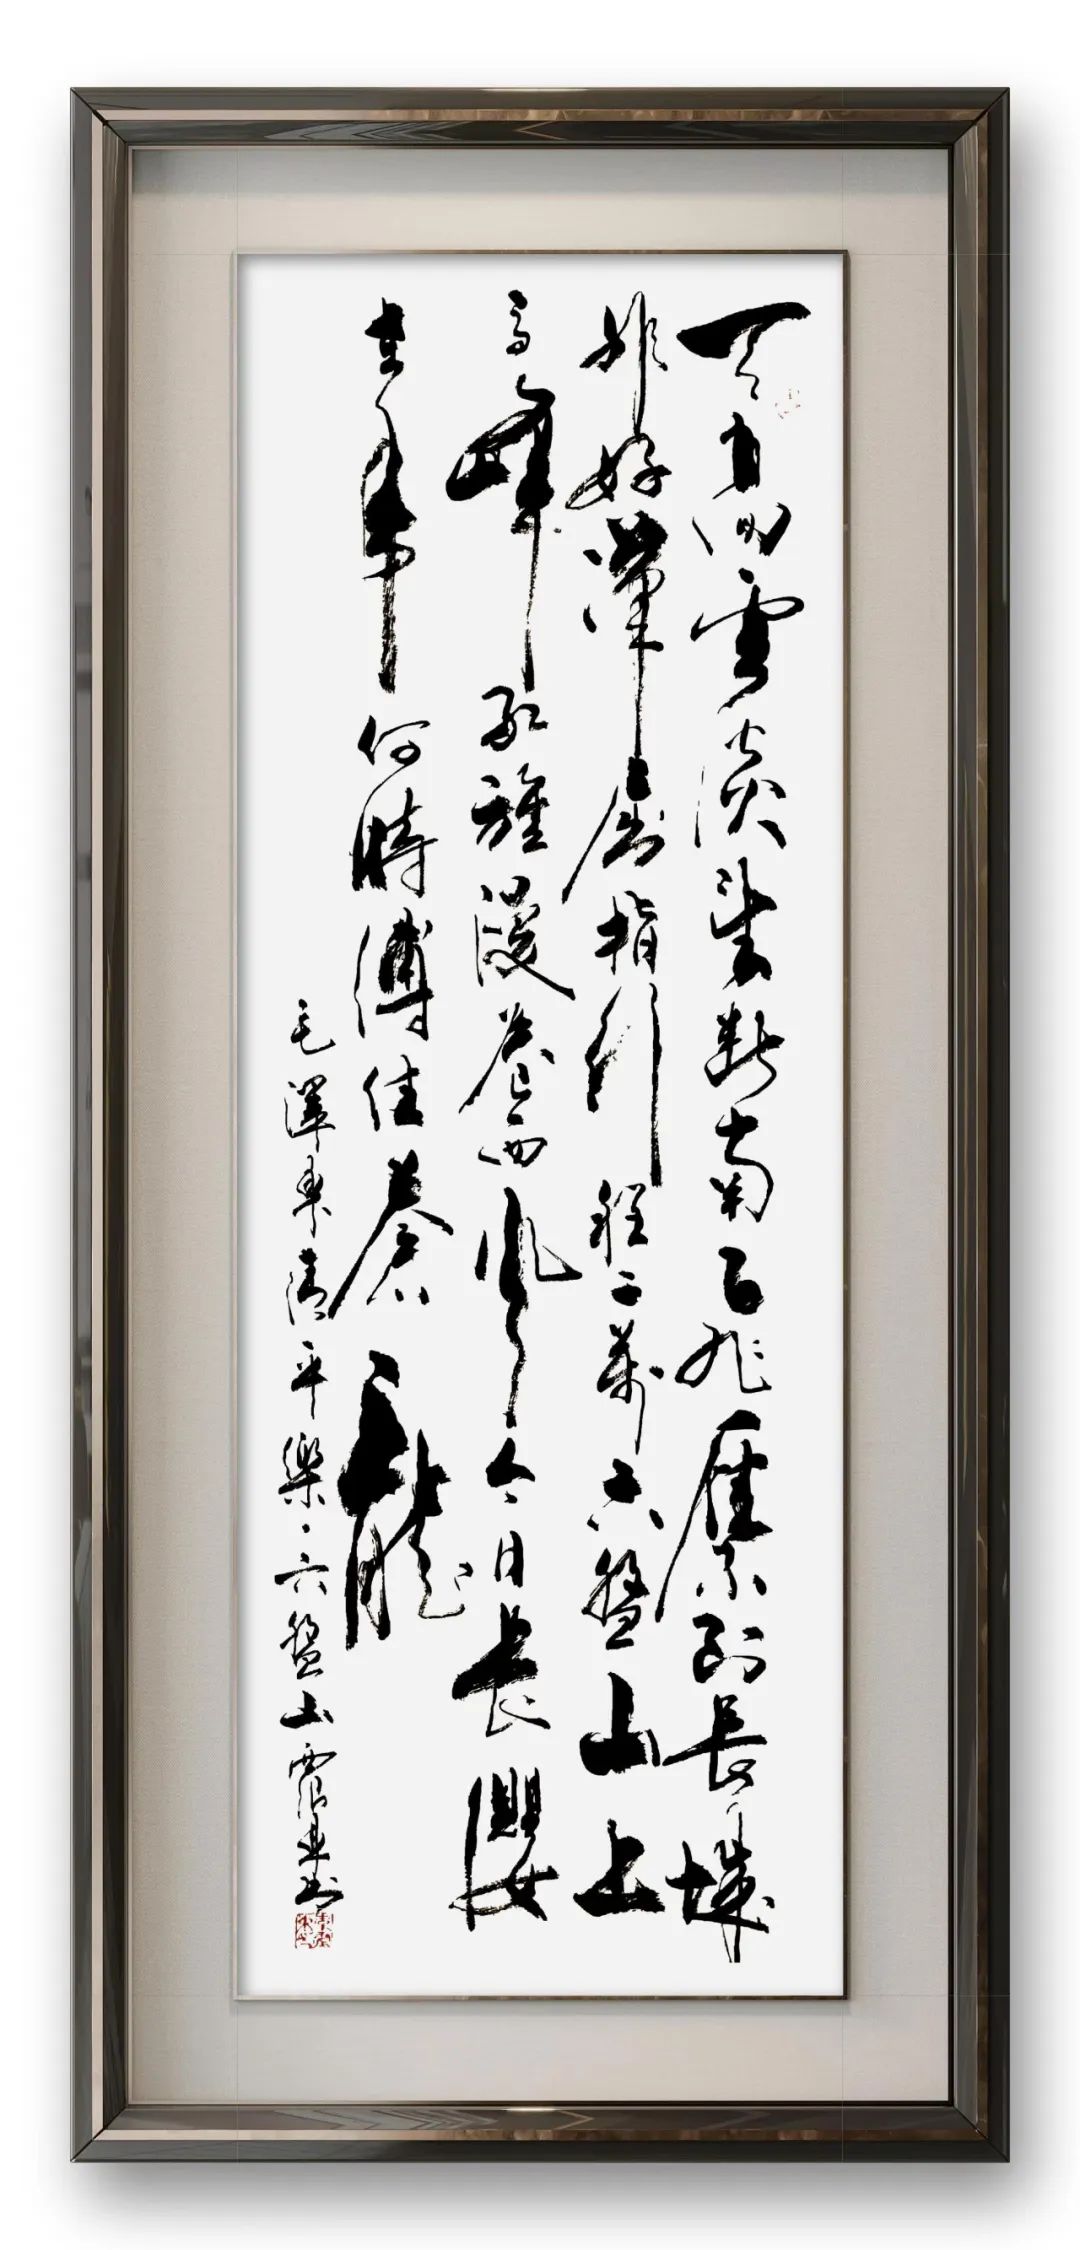 天高雲淡望斷南飛雁不到長城
非好漢屈指行程二萬六盤山上
高峰紅旗漫卷西風今日長纓
在手何時縛住蒼龍
毛澤東清平樂·六盤山 书